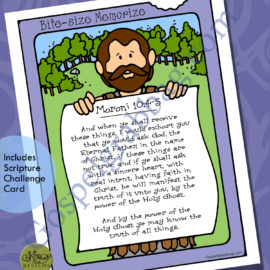 Bite-size Memorize
Moroni 10:4-5
And when ye shall receive
these things, I would exhort you
that ye would ask God, the
Eternal Father, in the name
of Christ, if these things are
not true; and if ye shall ask
with a sincere heart, with
real intent, having faith in
Christ, he will manifest the
truth of it unto you, by the
power of the Holy Ghost.
And by the power of the
Holy Ghost ye may know the
truth of all things.
Includes
Scripture
Challenge
Card